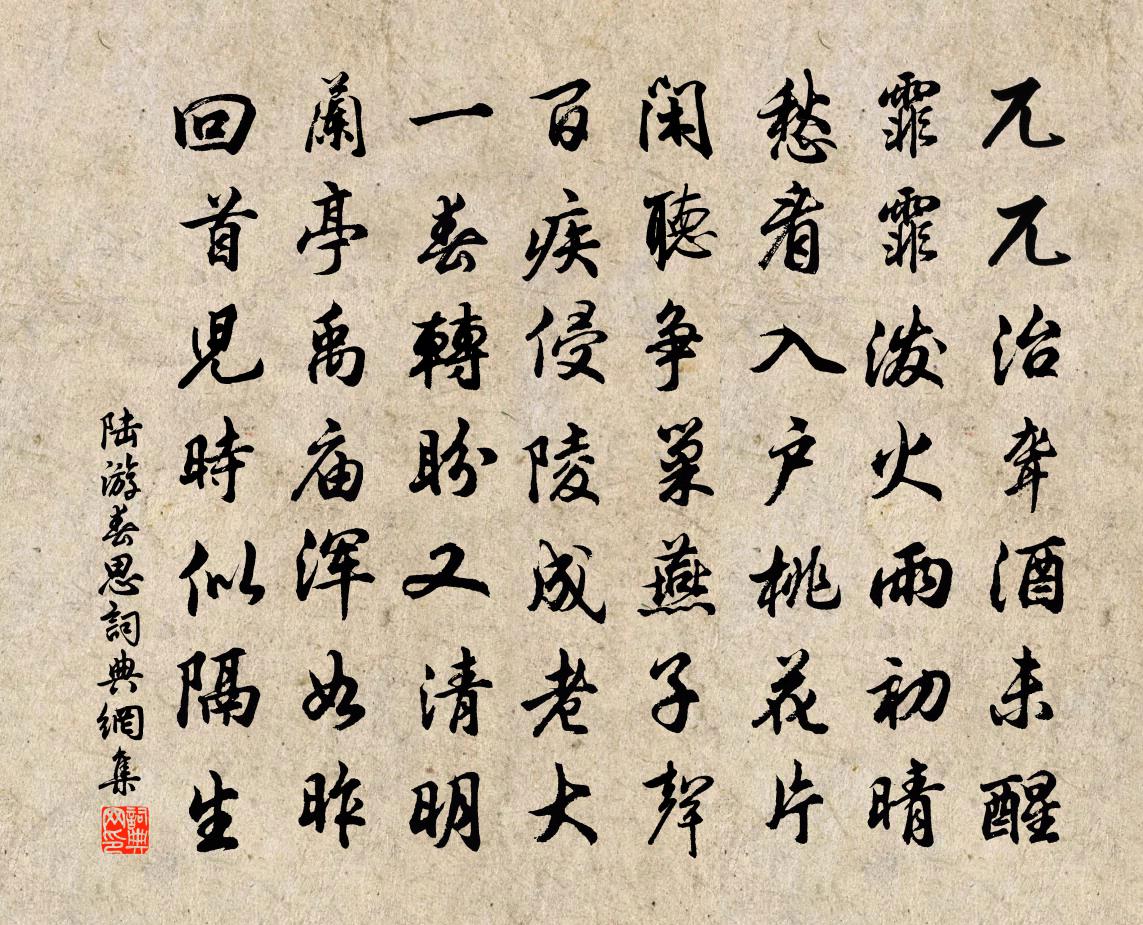 兀兀治聋酒未醒
霏霏泼火雨初晴
愁看入户桃花片
闲聽争巢燕子聲
百疾侵陵成老大
一春轉盼又清明
蘭亭禹庙浑如昨
回首児時似隔生
陆游春思詞典網集
詞典网印